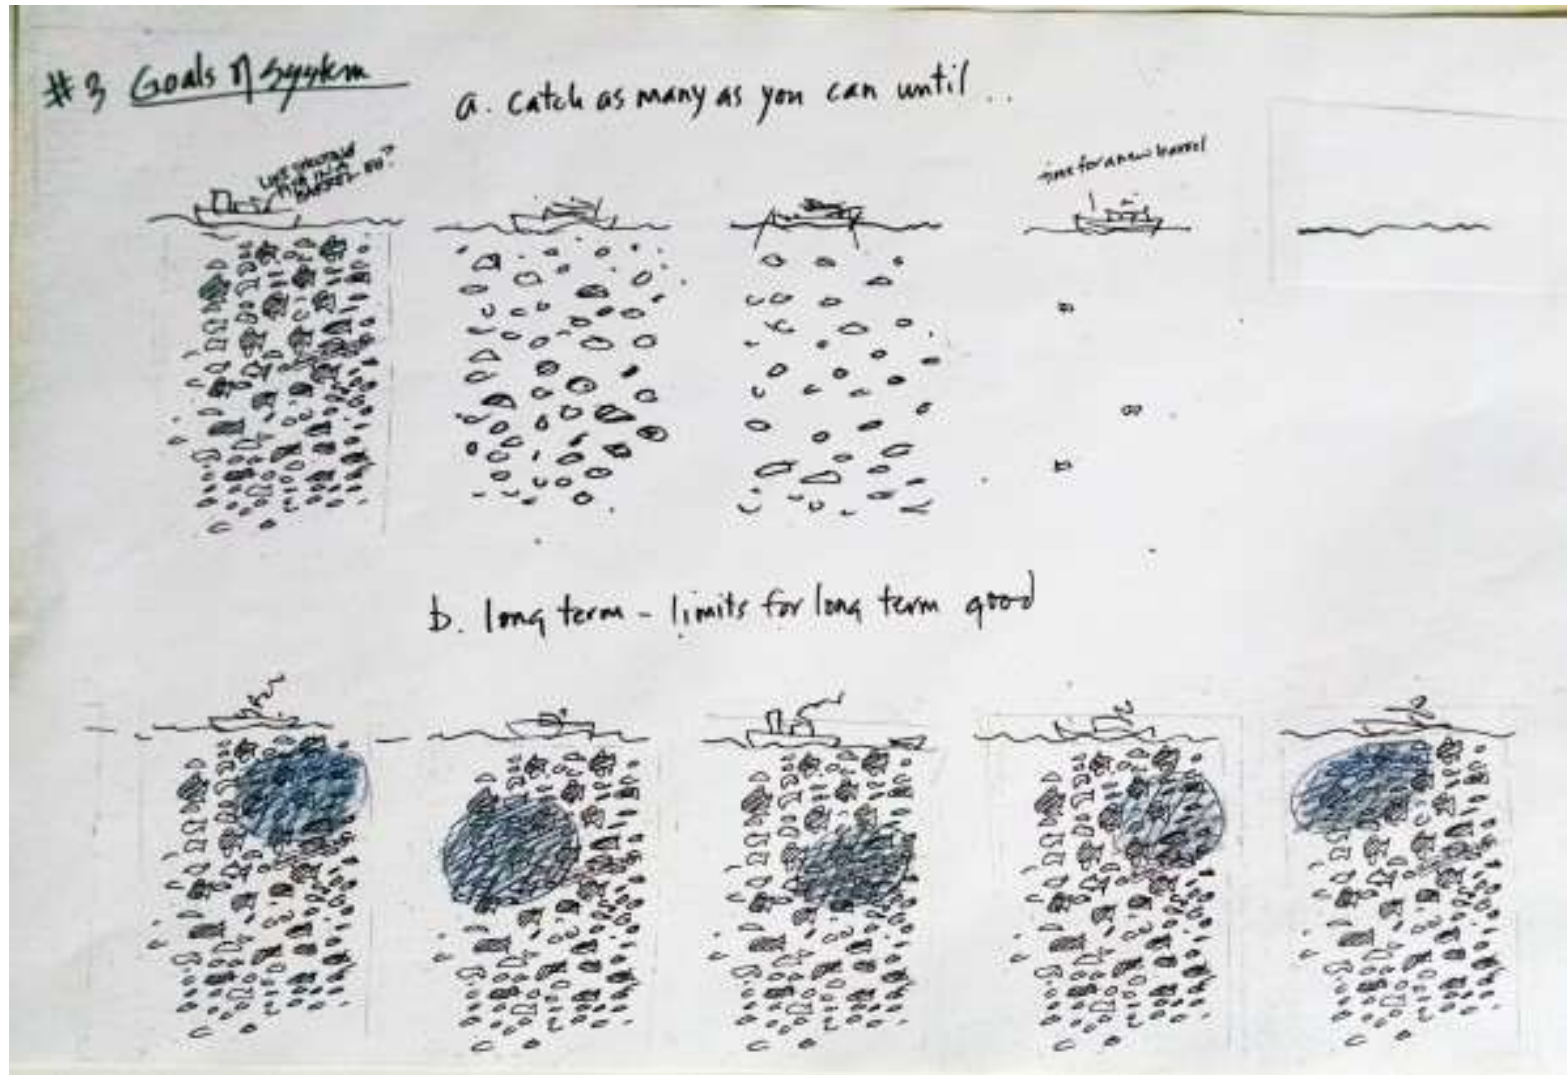 #3 Goals of system
a. catch as many as you can until ..
LIKE SHOOTING
FISH IN A
BARREL EH?
time for a new barrel
b. long term - limits for long term good